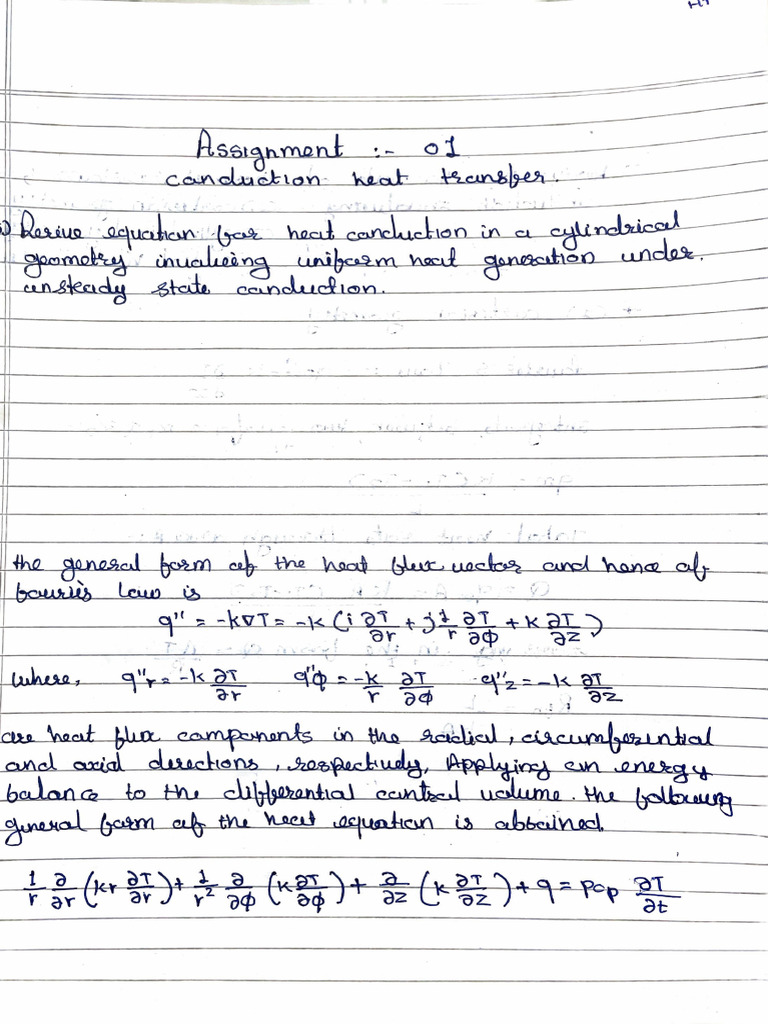 HT
Assignment :- 01
conduction heat transfer.
Derive equation for heat conduction in a cylindrical
geometry involving uniform heat generation under.
unsteady state conduction.
the general form of the heat flux vector and hence of
fourier's law is
q" = -k∇T = -k (i ∂T/∂r + j 1/r ∂T/∂φ + k ∂T/∂z)
where, q"r = -k ∂T/∂r q"φ = -k/r ∂T/∂φ q"z = -k ∂T/∂z
are heat flux components in the radial, circumferential
and axial directions, respectively, Applying an energy
balance to the differential control volume. the following
general form of the heat equation is obtained.
1/r ∂/∂r (kr ∂T/∂r) + 1/r² ∂/∂φ (k ∂T/∂φ) + ∂/∂z (k ∂T/∂z) + q = ρcp ∂T/∂t